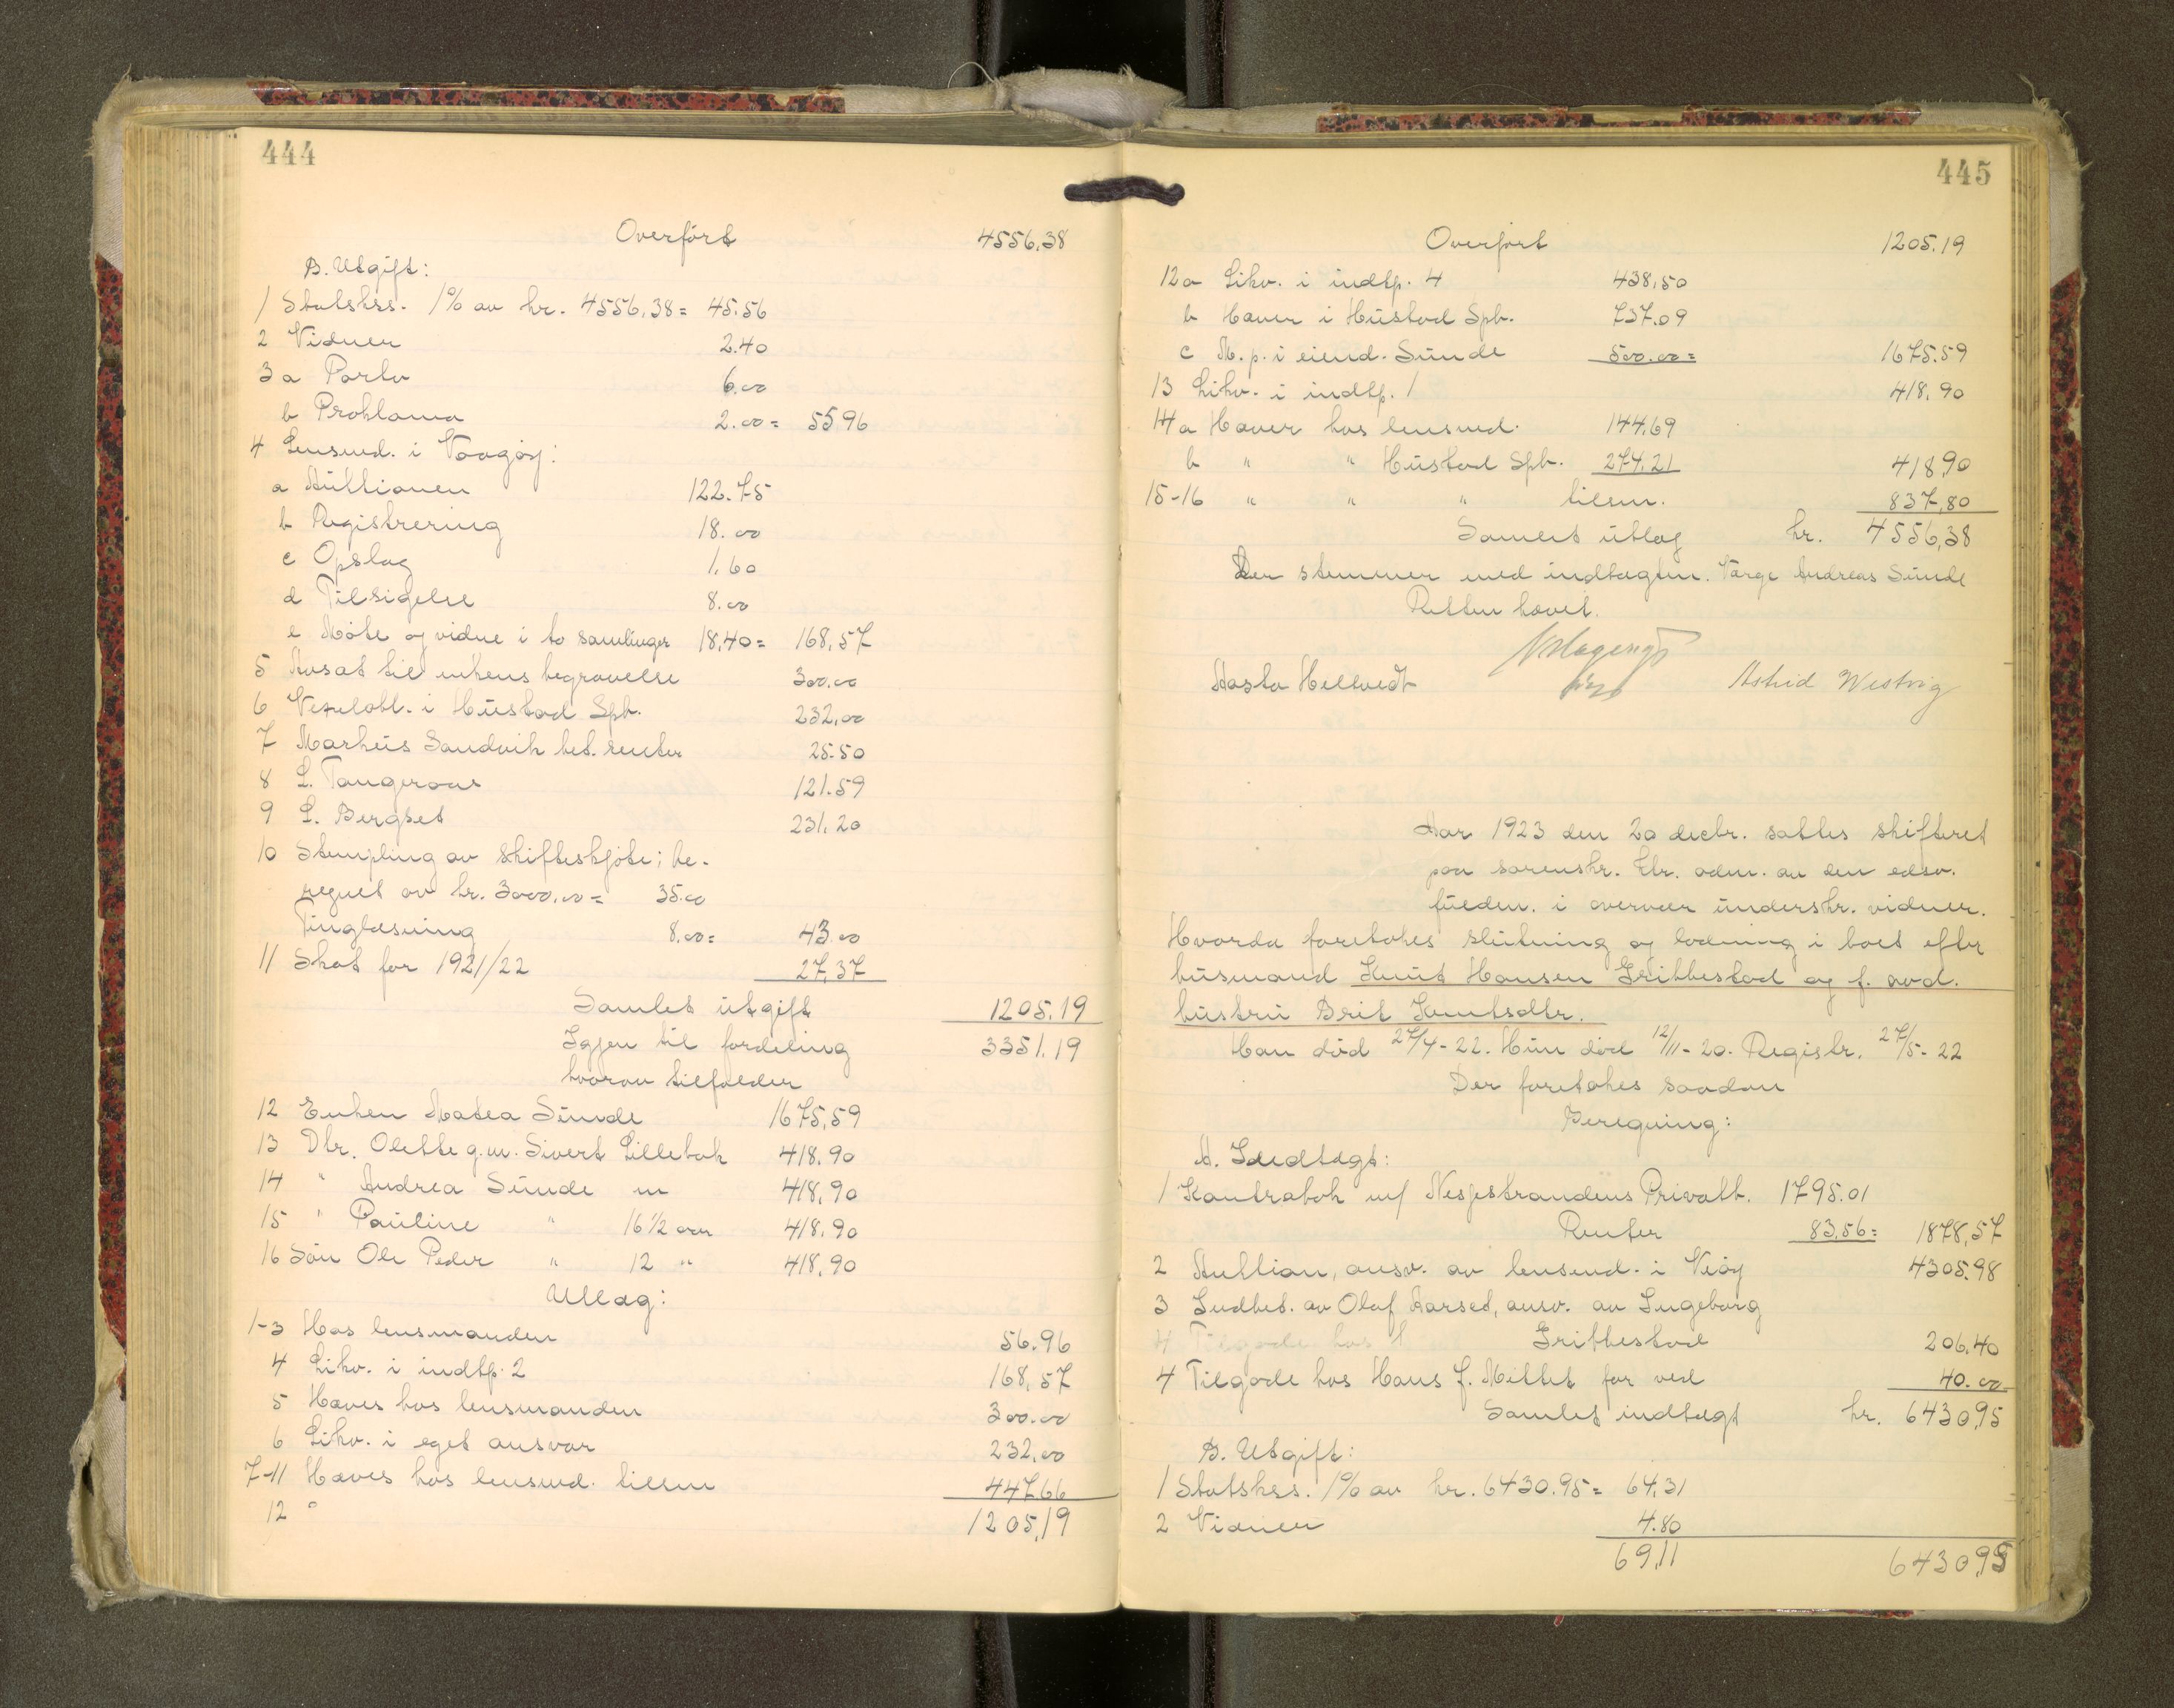 444
Overført 4556,38
B. Utgift:
1 Statskss. 1% av kr. 4556,38 = 45.56
2 Vidner 2.40
3a Porto 6.00
b Proklama 2.00 = 5596
4 Lensmd. i Vaagøy:
a Auktionen 122.75
b Registrering 18.00
c Opslag 1.60
d Tilsigelse 8.00
e Møte og vidne i to samlinger 18,40 = 168,57
5 Avsat til enkens begravelse 300.00
6 Vexelobl. i Hustad Spb. 232,00
7 Markus Sandvik bet. renter 25.50
8 L. Tangeraas 121.59
9 L. Bergset 231,20
10 Stempling av skifteskjøte; be-
regnet av kr. 3000,00 = 35.00
Tinglæsning 8.00 = 43.00
11 Skat for 1921/22 27,37
Samlet utgift 1205.19
Igjen til fordeling 3351.19
hvorav tilfalder
12 Enken Matea Sunde 1675,59
13 Dtr. Olette g.m. Sivert Lillebak 418.90
14 " Andrea Sunde m 418,90
15 " Pauline " 16 1/2 aar 418.90
16 Søn Ole Peder " 12 " 418,90
Utlæg:
1-3 Hos lensmanden 56.96
4 Likv. i indtp. 2 168,57
5 Haves hos lensmanden 300.00
6 Likv. i eget ansvar 232,00
7-11 Haves hos lensmd. tilsm 447,66
12 1205,19
445
Overført 1205.19
12a Likv. i indtp. 4 438,50
b Haver i Hustad Spb. 737.09
c M.p. i eiend. Sunde 500.00 = 1675.59
13 Likv. i indtp. 1 418,90
14a Haver hos lensmd. 144,69
b " " Hustad Spb. 274.21 418,90
15-16 " " " tilsm. 837,80
Samlet utlæg kr. 4556,38
Der stemmer med indtægten. Værge Andreas Sunde
Retten hævet.
Aasta Heltvedt Astrid Westvig
Aar 1923 den 20 decbr. sattes skifteret
paa sorenskr. ktr. adm. av den edsv.
fuldm. i overvær underskr. vidner.
Hvorda foretokes slutning og lodning i boet efter
husmand Knut Hansen Gribbestad og f. avd.
hustru Brit Knutsdtr.
Han død 27/4-22. Hun død 12/11-20. Registr. 27/5-22
Der foretokes saadan
Beregning:
A. Indtægt:
1 Kontrabok m/ Nesjestrandens Privatb. 1795.01
Renter 83,56 = 1878,57
2 Auktion, ansv. av lensmd. i Veøy 4305.98
3 Indbet. av Olaf Aarset, ansv. av Ingeborg
4 Tilgode hos H Gribbestad 206.40
4 Tilgode hos Hans J. Mittet for ved 40.00
Samlet indtægt kr. 6430,95
B. Utgift:
1 Statskss. 1% av kr. 6430.95 = 64,31
2 Vidner 4.80
69,11 6430,95